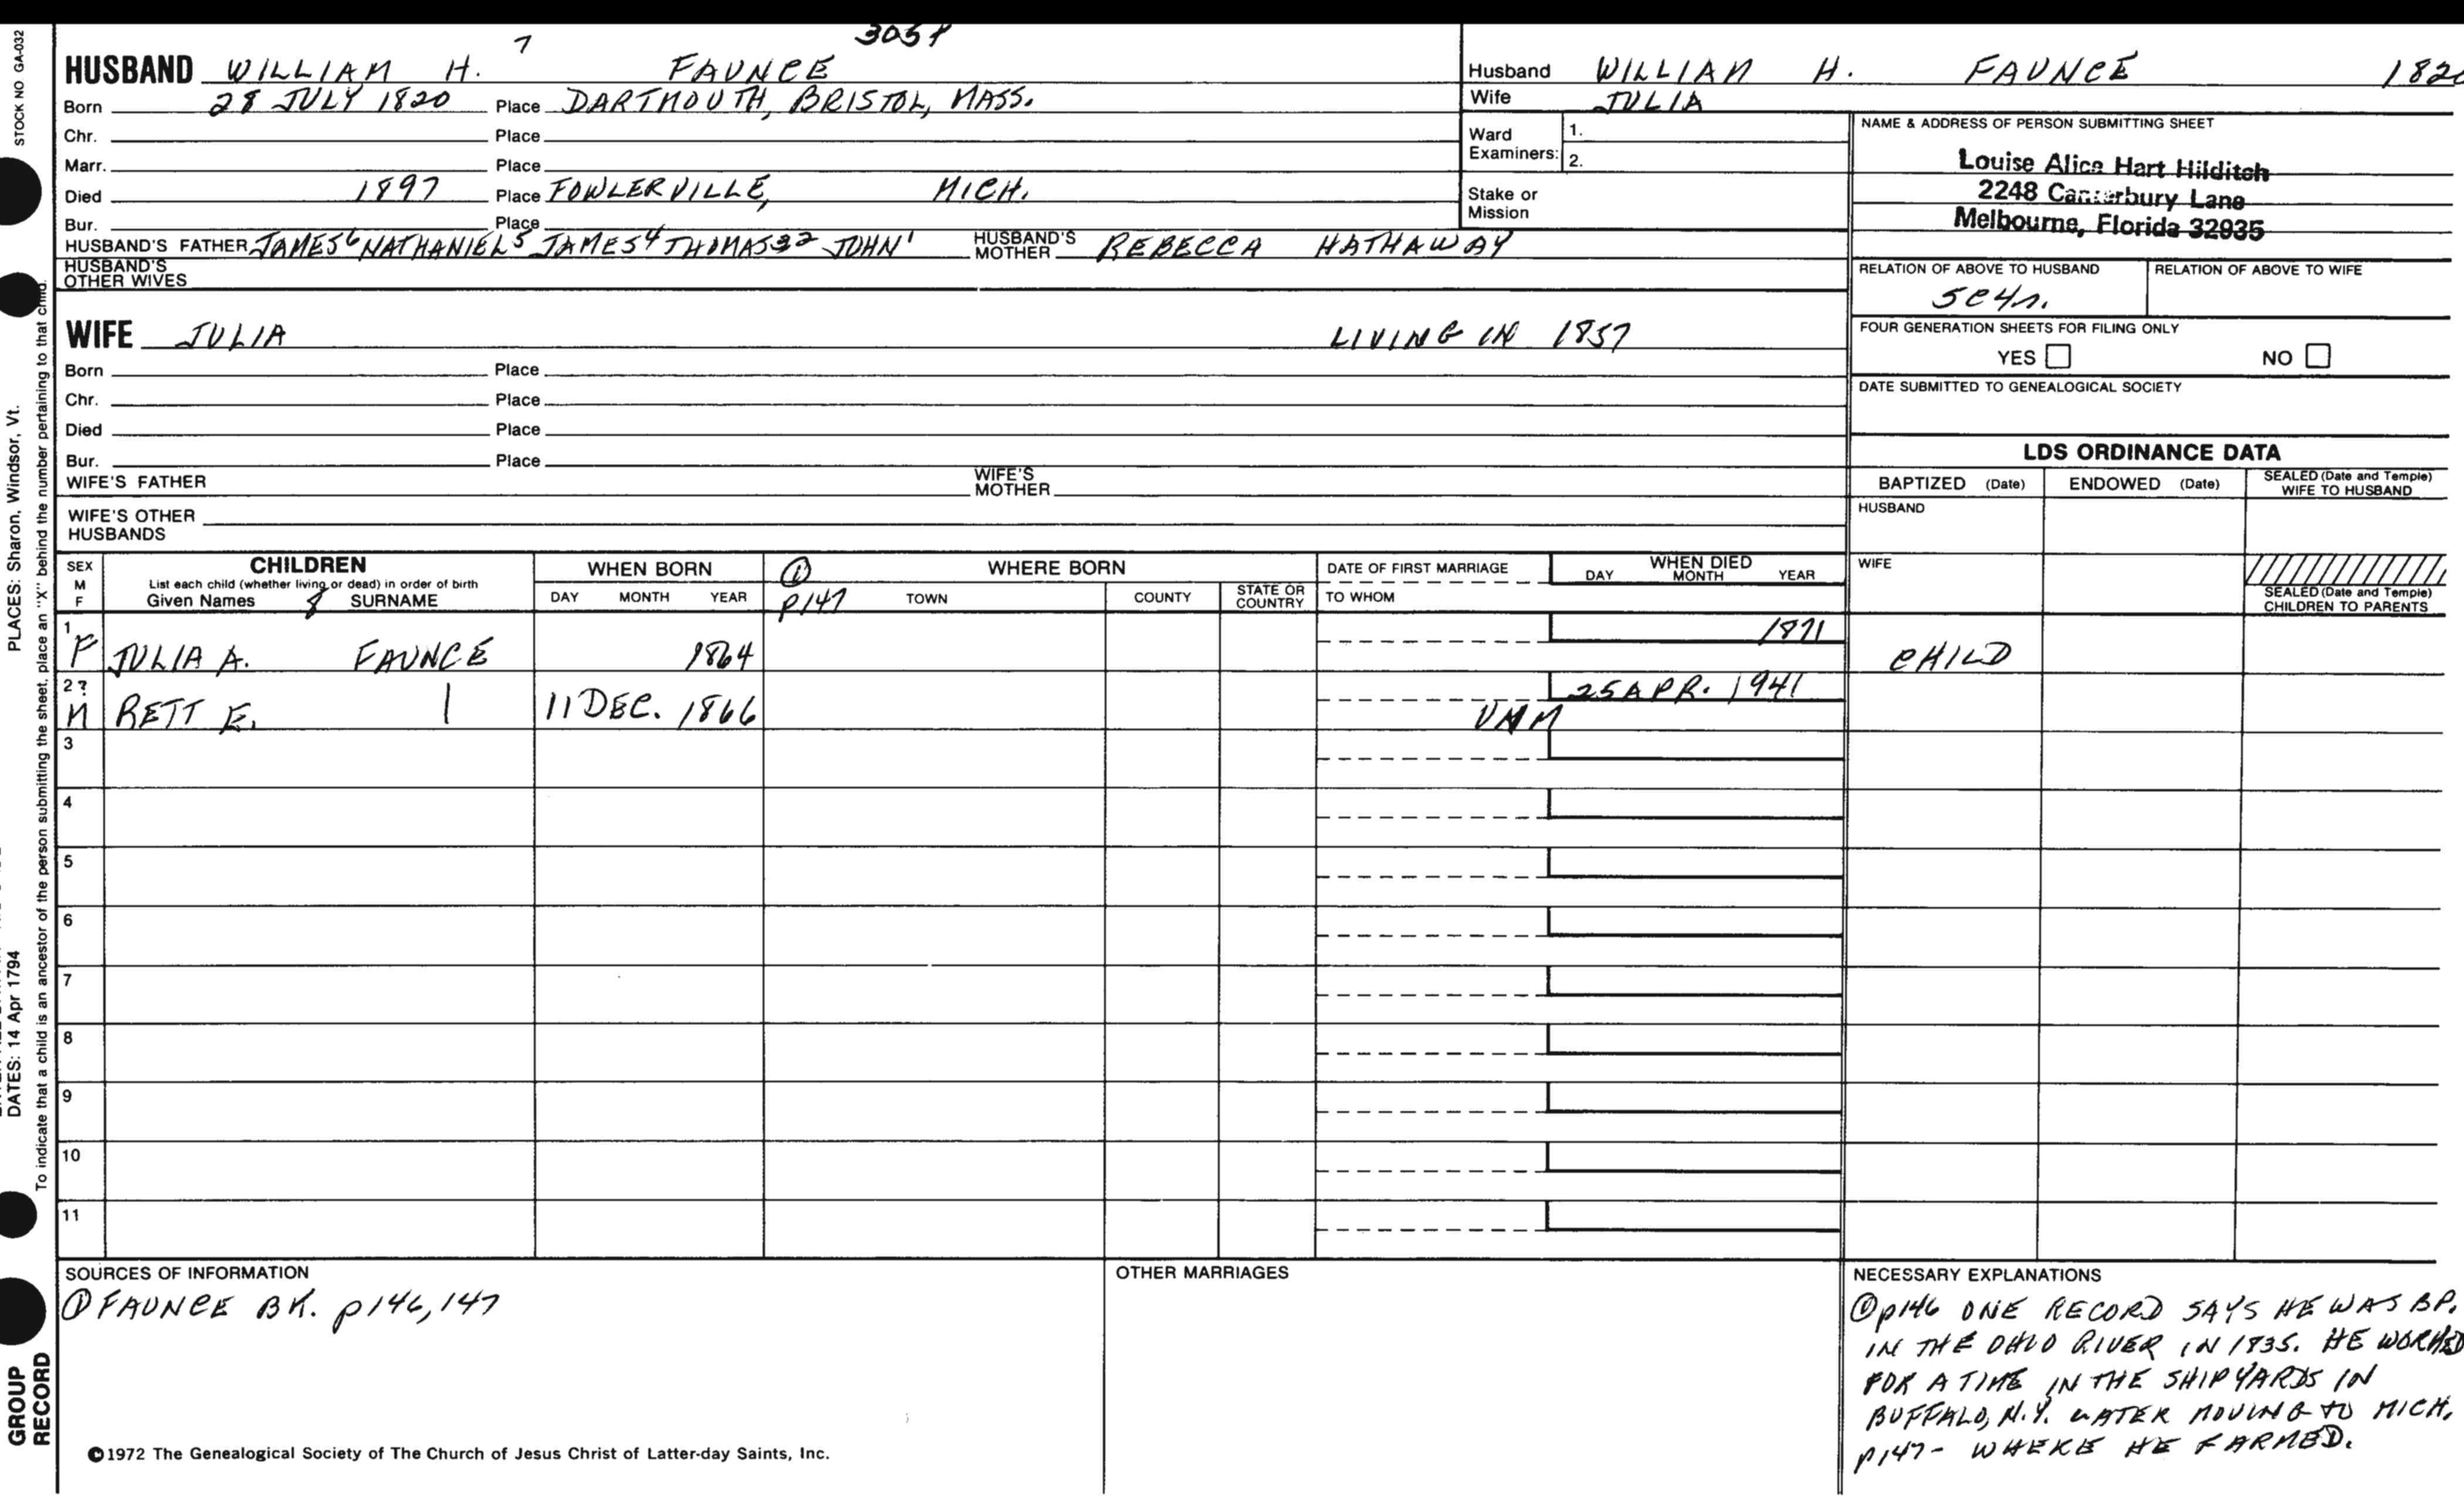 305
HUSBAND WILLIAM H. 7 FAUNCE
Born 28 JULY 1820 Place DARTMOUTH, BRISTOL, MASS.
Chr. Place
Marr. Place
Died 1897 Place FOWLERVILLE, MICH.
Bur. Place
HUSBAND'S FATHER JAMES6 NATHANIEL5 JAMES4 THOMAS32 JOHN1 HUSBAND'S MOTHER REBECCA HATHAWAY
HUSBAND'S OTHER WIVES
WIFE JULIA LIVING IN 1857
Born Place
Chr. Place
Died Place
Bur. Place
WIFE'S FATHER WIFE'S MOTHER
WIFE'S OTHER HUSBANDS
Husband WILLIAM H. FAUNCE 1820
Wife JULIA
Ward Examiners: 1.
2.
Stake or Mission
NAME & ADDRESS OF PERSON SUBMITTING SHEET
Louise Alice Hart Hilditch
2248 Canterbury Lane
Melbourne, Florida 32935
RELATION OF ABOVE TO HUSBAND RELATION OF ABOVE TO WIFE
5C4r.
FOUR GENERATION SHEETS FOR FILING ONLY
YES NO
DATE SUBMITTED TO GENEALOGICAL SOCIETY
LDS ORDINANCE DATA
BAPTIZED (Date) ENDOWED (Date) SEALED (Date and Temple) WIFE TO HUSBAND
HUSBAND
WIFE
SEALED (Date and Temple) CHILDREN TO PARENTS
SEX M F
CHILDREN
List each child (whether living or dead) in order of birth
Given Names 8 SURNAME
WHEN BORN
DAY MONTH YEAR
① p147
WHERE BORN
TOWN COUNTY STATE OR COUNTRY
DATE OF FIRST MARRIAGE
TO WHOM
WHEN DIED
DAY MONTH YEAR
1 F JULIA A. FAUNCE 1864 1871 CHILD
2 ? M RETT E. | 11 DEC. 1866 UNM 25 APR. 1941
3
4
5
6
7
8
9
10
11
SOURCES OF INFORMATION
① FAUNCE BK. p146, 147
OTHER MARRIAGES
NECESSARY EXPLANATIONS
① p146 ONE RECORD SAYS HE WAS BP.
IN THE OHIO RIVER IN 1835. HE WORKED
FOR A TIME IN THE SHIPYARDS IN
BUFFALO, N.Y. LATER MOVING TO MICH.
p147- WHERE HE FARMED.
©1972 The Genealogical Society of The Church of Jesus Christ of Latter-day Saints, Inc.
STOCK NO GA-032
PLACES: Sharon, Windsor, Vt.
DATES: 14 Apr 1794
To indicate that a child is an ancestor of the person submitting the sheet, place an "X" behind the number pertaining to that child.
GROUP
RECORD